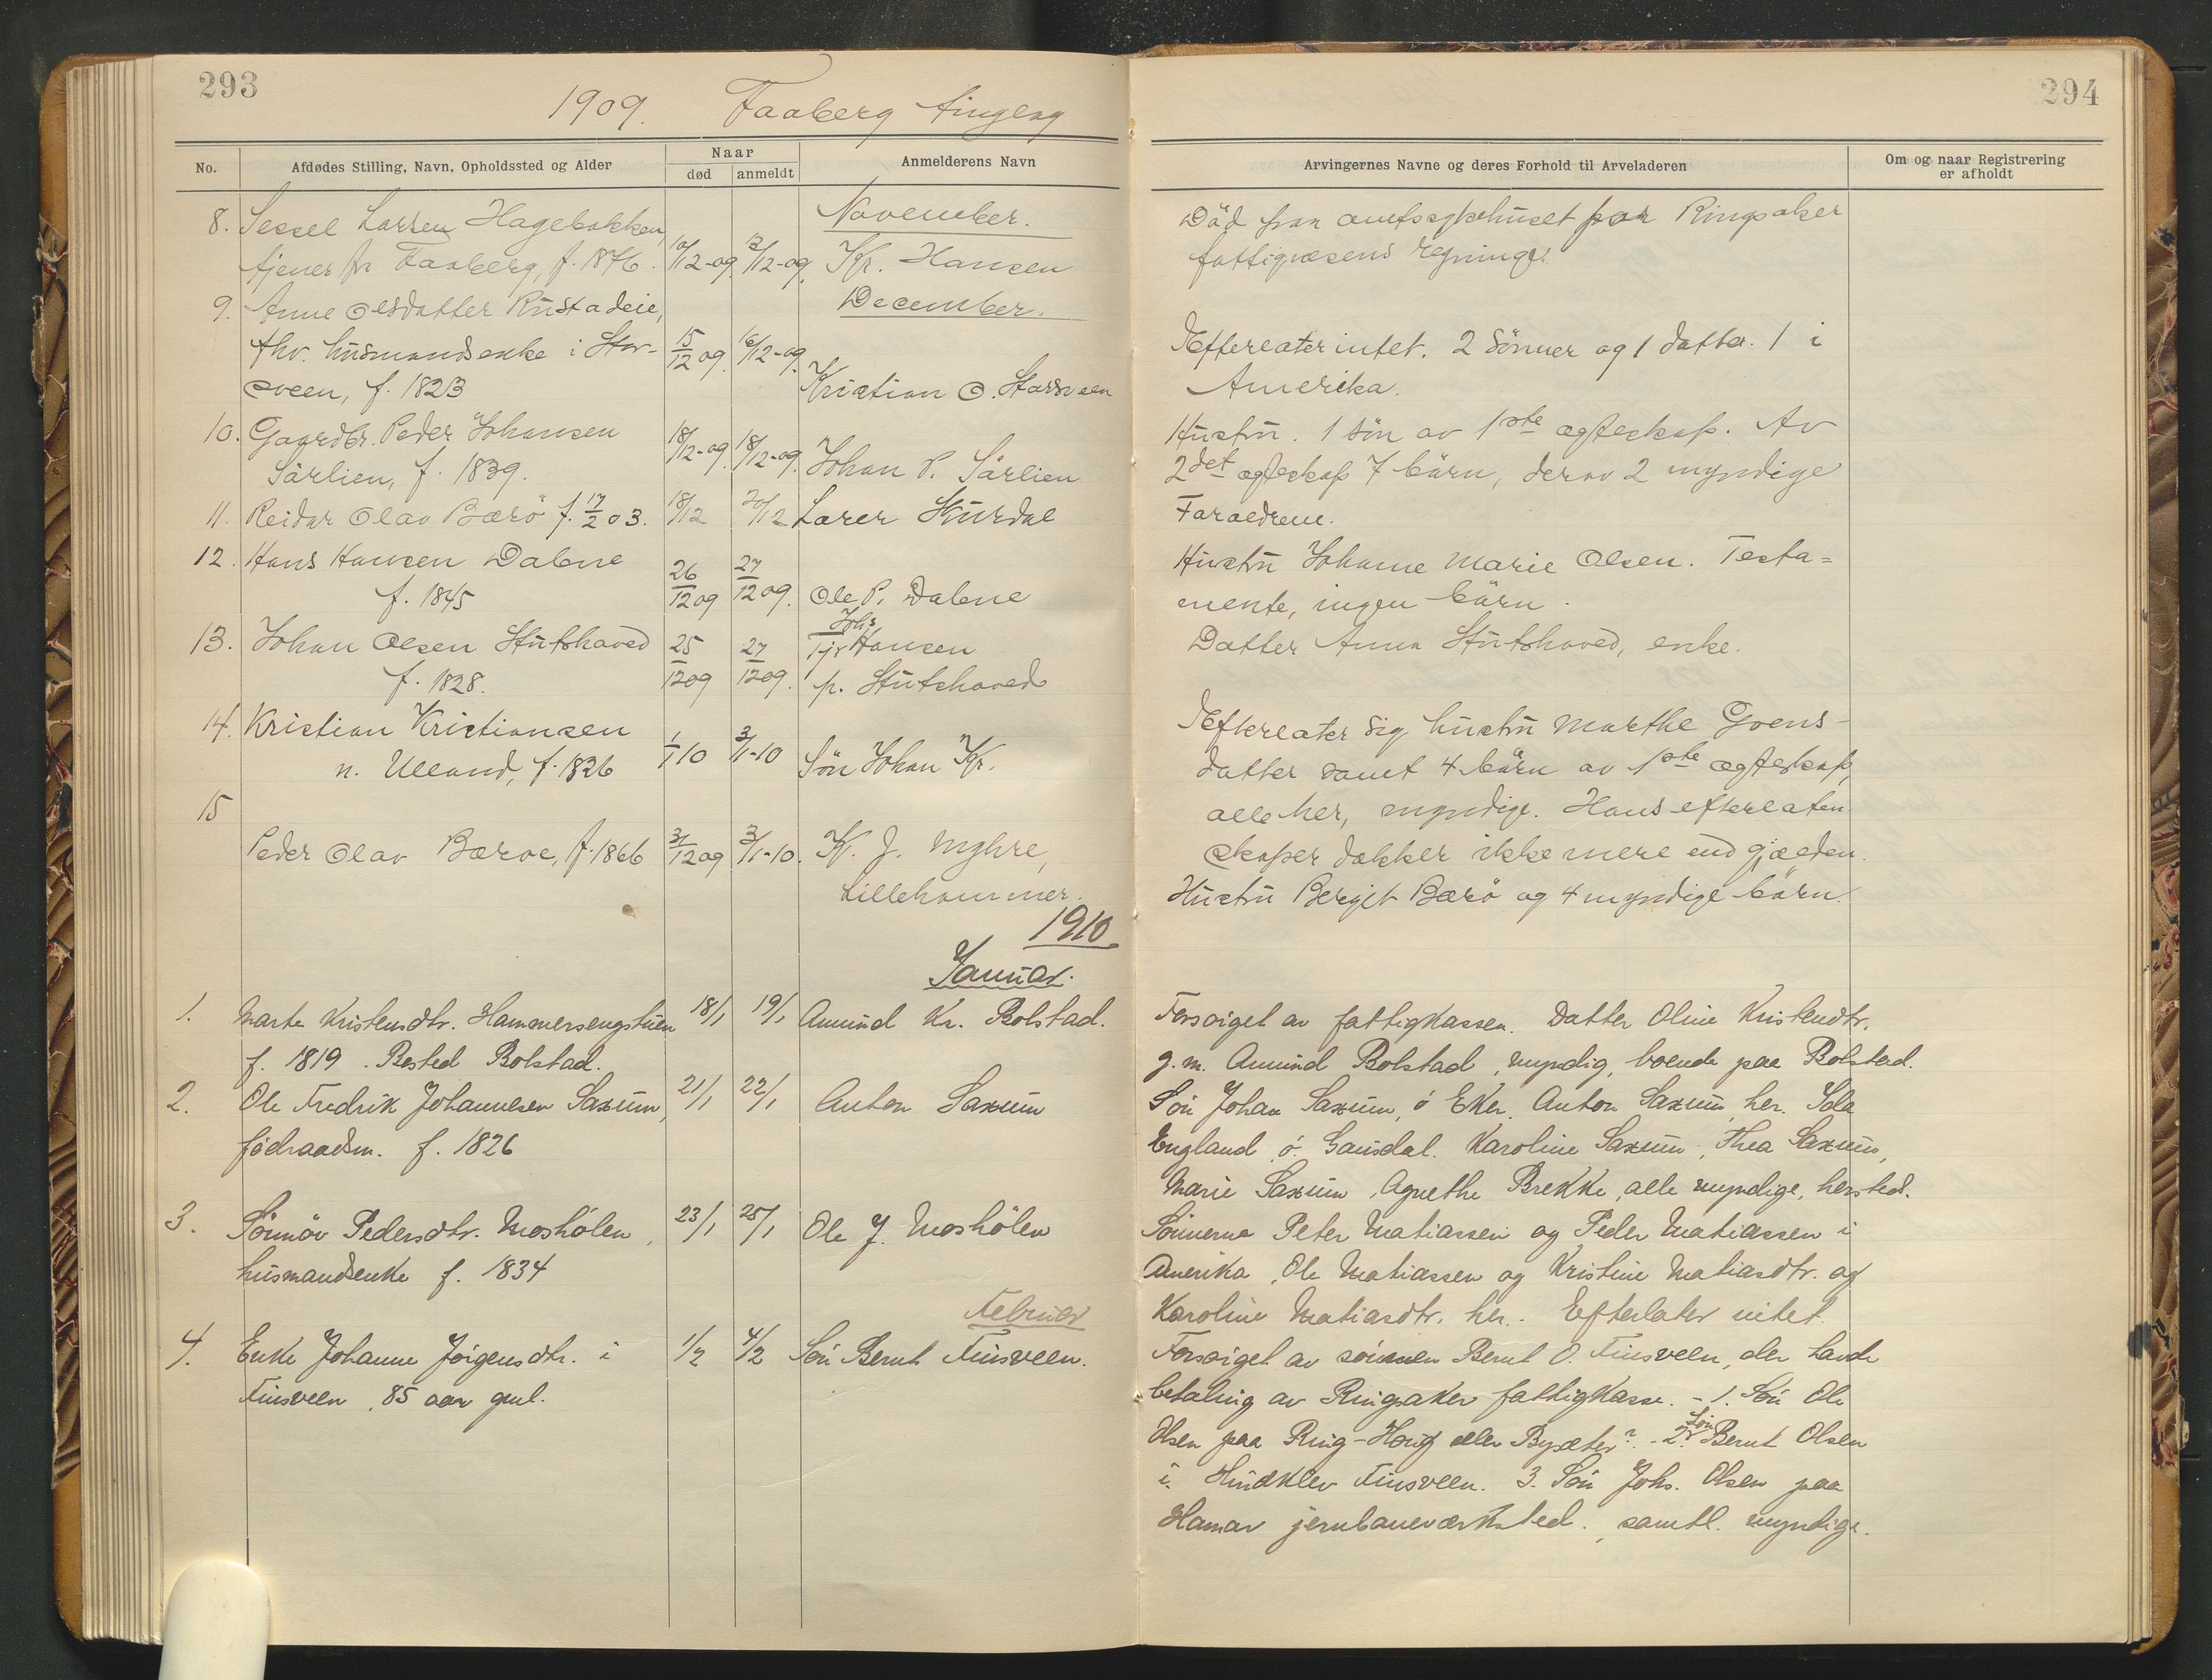 293
1909. Faaberg tinglag
No.
Afdødes Stilling, Navn, Opholdssted og Alder
Naar
død
anmeldt
Anmelderens Navn
November.
8. Sessel Larsen Hagebakken,
tjener fra Faaberg, f. 1876. 10/12-09 13/12-09. Kr. Hansen
December.
9. Anne Olsdatter Rustadeie,
fhv. husmandsenke i Stor- 15/12 09. 16/12-09.
sveen, f. 1823 Kristian O. Storsveen
10. Gaardbr. Peder Johansen
Sørlien, f. 1839. 18/12-09. 18/12-09. Johan P. Sørlien
11. Reidar Olav Bærö f. 17/2 03. 18/12 20/12 Larer Skurdal
12. Hans Hansen Dalene
f. 1845 26/12 09 27/12 09. Ole P. Dalene
13. Johan Olsen Stutshoved 25/12 09 27/12 09. Tjr Johs Hansen
f. 1828. p. Stutshoved
14. Kristian Kristiansen
n. Ulland, f. 1826 1/1 10 3/1-10 Sön Johan Kr.
15
Peder Olav Bærøe, f. 1866 31/12 09 3/1-10. K. J. Myhre,
Lillehammer.
1910
Januar.
1. Marte Kristensdtr. Hammersengstuen 18/1 19/1 Amund Kr. Bolstad.
f. 1819. Bosted Bolstad.
2. Ole Fredrik Johannesen Saxum, 21/1 22/1 Anton Saxum
föderaadsm. f. 1826
3. Sönnöv Pedersdtr. Moshölen, 23/1 25/1 Ole J. Moshölen
husmandsenke f. 1834
Februar
4. Enke Johanne Jörgensdtr. i 1/2 4/2 Sön Bernt Finsveen.
Finsveen, 85 aar gml.
294
Arvingernes Navne og deres Forhold til Arveladeren
Om og naar Registrering
er afholdt
Död paa amtssykehuset for Ringsaker
fattigvæsens regning.
Efterlater intet. 2 Sönner og 1 datter. 1 i
Amerika.
Hustru. 1 sön av 1ste egteskap. Av
2det egteskap 7 börn, derav 2 myndige
Foraldrene.
Hustru Johanne Marie Olsen. Testa=
mente, ingen börn.
Datter Anna Stutshoved, enke.
Efterlater sig hustru Marthe Goens-
datter samt 4 börn av 1ste egteskap,
alle her, myndige. Hans efterlaten
skaper dækker ikke mere end gjælden.
Hustru Berget Bærö og 4 myndige börn.
Forsörget av fattigkassen. Datter Oline Kristendtr.
g. m. Amund Bolstad, myndig, boende paa Bolstad.
Sön Johan Saxum, ö Eker, Anton Saxum, her. Ida
England ö. Gausdal. Karoline Saxum, Thea Saxum,
Marie Saxum, Agnethe Brekke, alle myndige, hersted.
Sönnerne Peter Matiassen og Peder Matiassen i
Amerika, Ole Matiassen og Kristine Matiasdtr. og
Karoline Matiasdtr. her. - Efterlater intet.
Forsörget av sönnen Bernt O. Finsveen, der havde
betaling av Ringsaker fattigkasse. - 1. Sön Ole
Olsen paa Ring-Houg eller Bysæter? - 2. Sön Bernt Olsen
i Hundklev Finsveen. 3. Sön Johs. Olsen paa
Hamar jernbaneværksted., samtl. myndige.